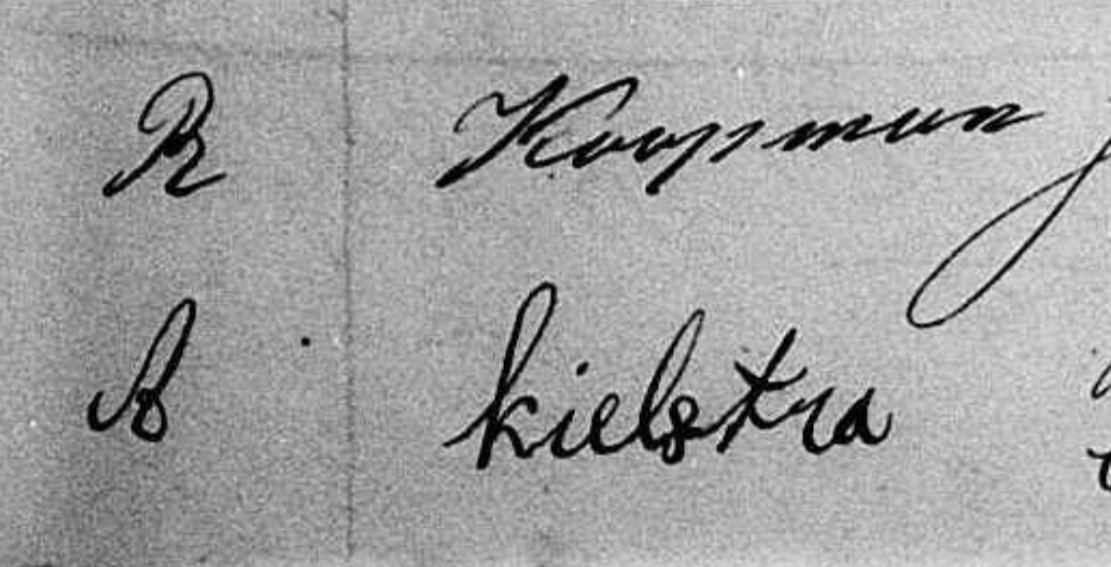 R Koopman
A kielstra